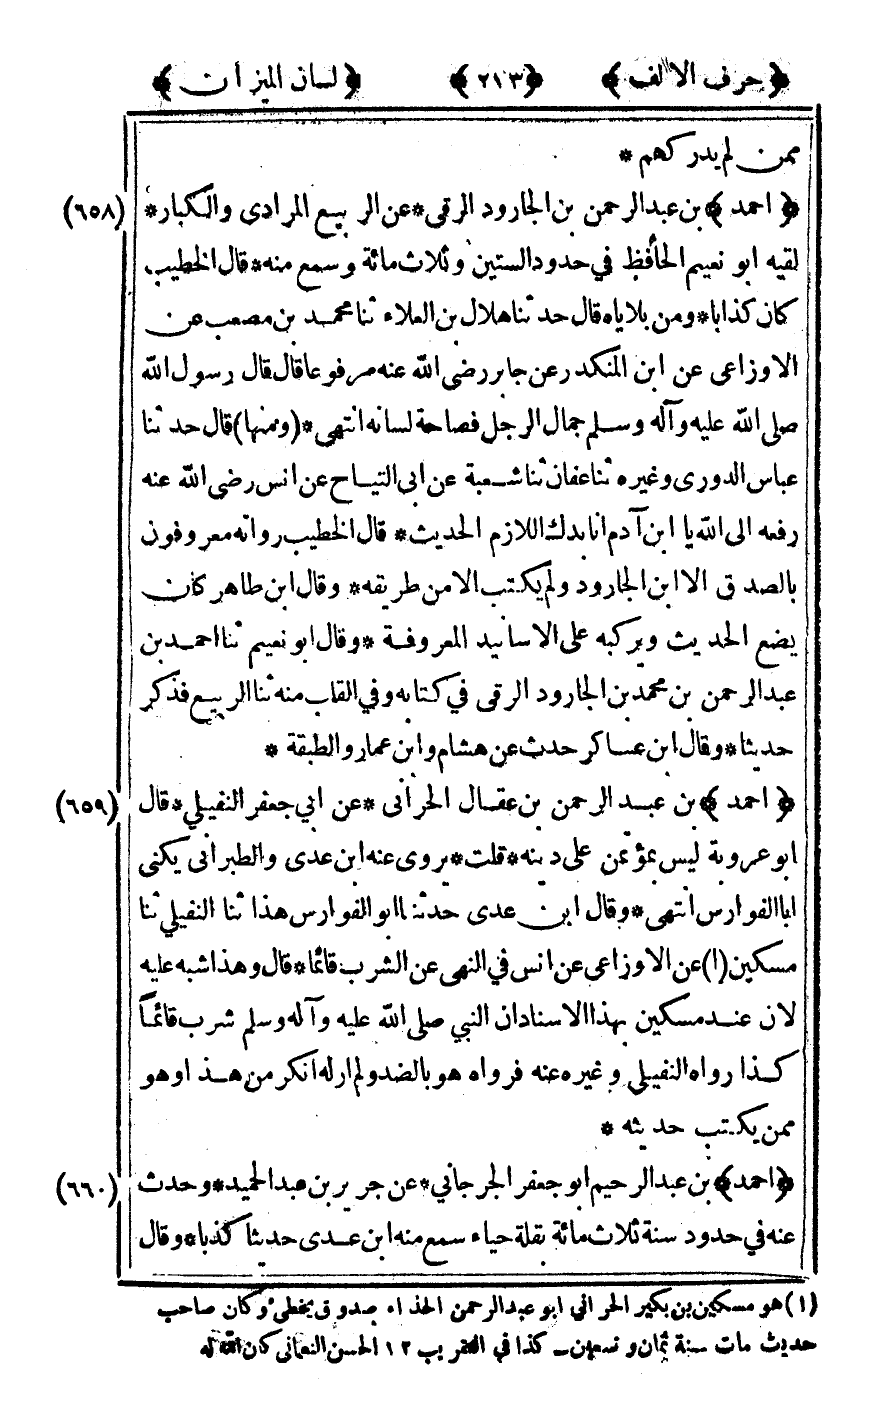 ﴿ حرف الالف ﴾ ﴿ ٢١٣ ﴾ ﴿ لسان الميزان ﴾
ممن لم يدركهم *
﴿ احمد ﴾ بن عبدالرحمن بن الجارود الرقى * عن الربيع المرادى والكبار * (٦٥٨)
لقيه ابو نعيم الحافظ في حدود الستين وثلاث مائة وسمع منه * قال الخطيب
كان كذابا * ومن بلاياه قال حدثنا هلال بن العلاء ثنا محمد بن مصعب عن
الاوزاعى عن ابن المنكدر عن جابر رضى الله عنه مرفوعا قال قال رسول الله
صلى الله عليه وآله وسلم جمال الرجل فصاحة لسانه انتهى * (ومنها) قال حدثنا
عباس الدورى وغيره ثنا عفان ثنا شعبة عن ابى التياح عن انس رضى الله عنه
رفعه الى الله يا ابن آدم انا بدك اللازم الحديث * قال الخطيب رواته معروفون
بالصدق الا ابن الجارود ولم يكتب الا من طريقه * وقال ابن طاهر كان
يضع الحديث ويركبه على الاسانيد المعروفة * وقال ابو نعيم ثنا احمد بن
عبدالرحمن بن محمد بن الجارود الرقى في كتابه وفي القلب منه ثنا الربيع فذكر
حديثا * وقال ابن عساكر حدث عن هشام وابن عمار والطبقة *
﴿ احمد ﴾ بن عبد الرحمن بن عقال الحرانى * عن ابي جعفر النفيلي * قال (٦٥٩)
ابو عروبة ليس بمؤتمن على دينه * قلت * يروى عنه ابن عدى والطبرانى يكنى
ابا الفوارس انتهى * وقال ابن عدى حدثنا ابو الفوارس هذا ثنا النفيلي ثنا
مسكين (١) عن الاوزاعى عن انس في النهى عن الشرب قائما * قال وهذا شبه عليه
لان عند مسكين بهذا الاسناد ان النبي صلى الله عليه وآله وسلم شرب قائماً
كذا رواه النفيلي وغيره عنه فرواه هو بالضد ولم ار له انكر من هذا وهو
ممن يكتب حديثه *
﴿ احمد ﴾ بن عبد الرحيم ابو جعفر الجرجاني * عن جرير بن عبد الحميد * وحدث (٦٦٠)
عنه في حدود سنة ثلاث مائة بقلة حياء سمع منه ابن عدى حديثا كذبا * وقال
(١) هو مسكين بن بكير الحراني ابو عبدالرحمن الحذاء صدوق يخطئ وكان صاحب
حديث مات سنة ثمان وتسعين ــ كذا في التقريب ١٢ الحسن النعمانى كان الله له